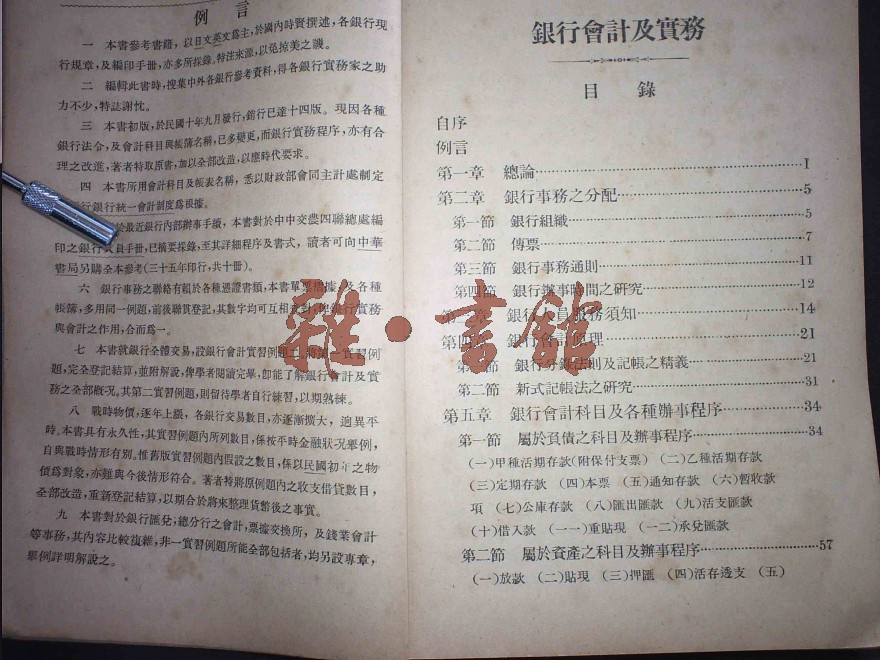 例言
一　本書參考書籍，以日文英文爲主，於國內時賢撰述，各銀行現
行規章，及編印手冊，亦多所採錄。特注來源，以免掠美之譏。
二　編輯此書時，搜集中外各銀行參考資料，得各銀行實務家之助
力不少，特誌謝忱。
三　本書初版，於民國十年九月發行，銷行已達十四版。現因各種
銀行法令，及會計科目與帳簿名稱，已多變更，而銀行實務程序，亦有合
理之改進，著者特取原書，加以全部改造，以應時代要求。
四　本書所用會計科目及帳表名稱，悉以財政部會同主計處制定
行銀行統一會計制度爲根據。
於最近銀行內部辦事手續，本書對於中中交農四聯總處編
印之銀行員手冊，已摘要採錄，至其詳細程序及書式，讀者可向中華
書局另購全本參考(三十五年印行，共十冊)。
六　銀行事務之聯絡有賴於各種憑證書類，本書單票借據，及各種
帳簿，多用同一例題，前後聯貫登記，其數字均可互相對，銀行實務
與會計之作用，合而爲一。
七　本書就銀行全體交易，設銀行會計實習例題二，將第一實習例
題，完全登記結算，並附解說，俾學者閱讀完畢，卽能了解銀行會計及實
務之全部概况。其第二實習例題，則留待學者自行練習，以期熟練。
八　戰時物價，逐年上漲，各銀行交易數目，亦逐漸擴大，迥異平
時。本書具有永久性，其實習例題內所列數目，係按平時金融狀况舉例，
自與戰時情形有別。惟舊版實習例題內假設之數目，係以民國初年之物
價爲對象，亦難與今後情形符合。著者特將原例題內之收支借貸數目，
全部改造，重新登記結算，以期合於將來整理貨幣後之事實。
九　本書對於銀行匯兌，總分行之會計，票據交換所，及錢業會計
等事務，其內容比較複雜，非一實習例題所能全部包括者，均另設專章，
舉例詳明解說之。
銀行會計及實務
目錄
自序
例言
第一章　總論……1
第二章　銀行事務之分配……5
第一節　銀行組織……5
第二節　傳票……7
第三節　銀行事務通則……11
第四節　銀行辦事時間之研究……12
第三章　銀行人員服務須知……14
第四章　銀行會計原理……21
第一節　銀行分錄法則及記帳之精義……21
第二節　新式記帳法之研究……31
第五章　銀行會計科目及各種辦事程序……34
第一節　屬於負債之科目及辦事程序……34
(一)甲種活期存款(附保付支票)　(二)乙種活期存款
(三)定期存款　(四)本票　(五)通知存款　(六)暫收款
項　(七)公庫存款　(八)匯出匯款　(九)活支匯款
(十)借入款　(一一)重貼現　(一二)承兌匯款
第二節　屬於資產之科目及辦事程序……57
(一)放款　(二)貼現　(三)押匯　(四)活存透支　(五)
雜·書館